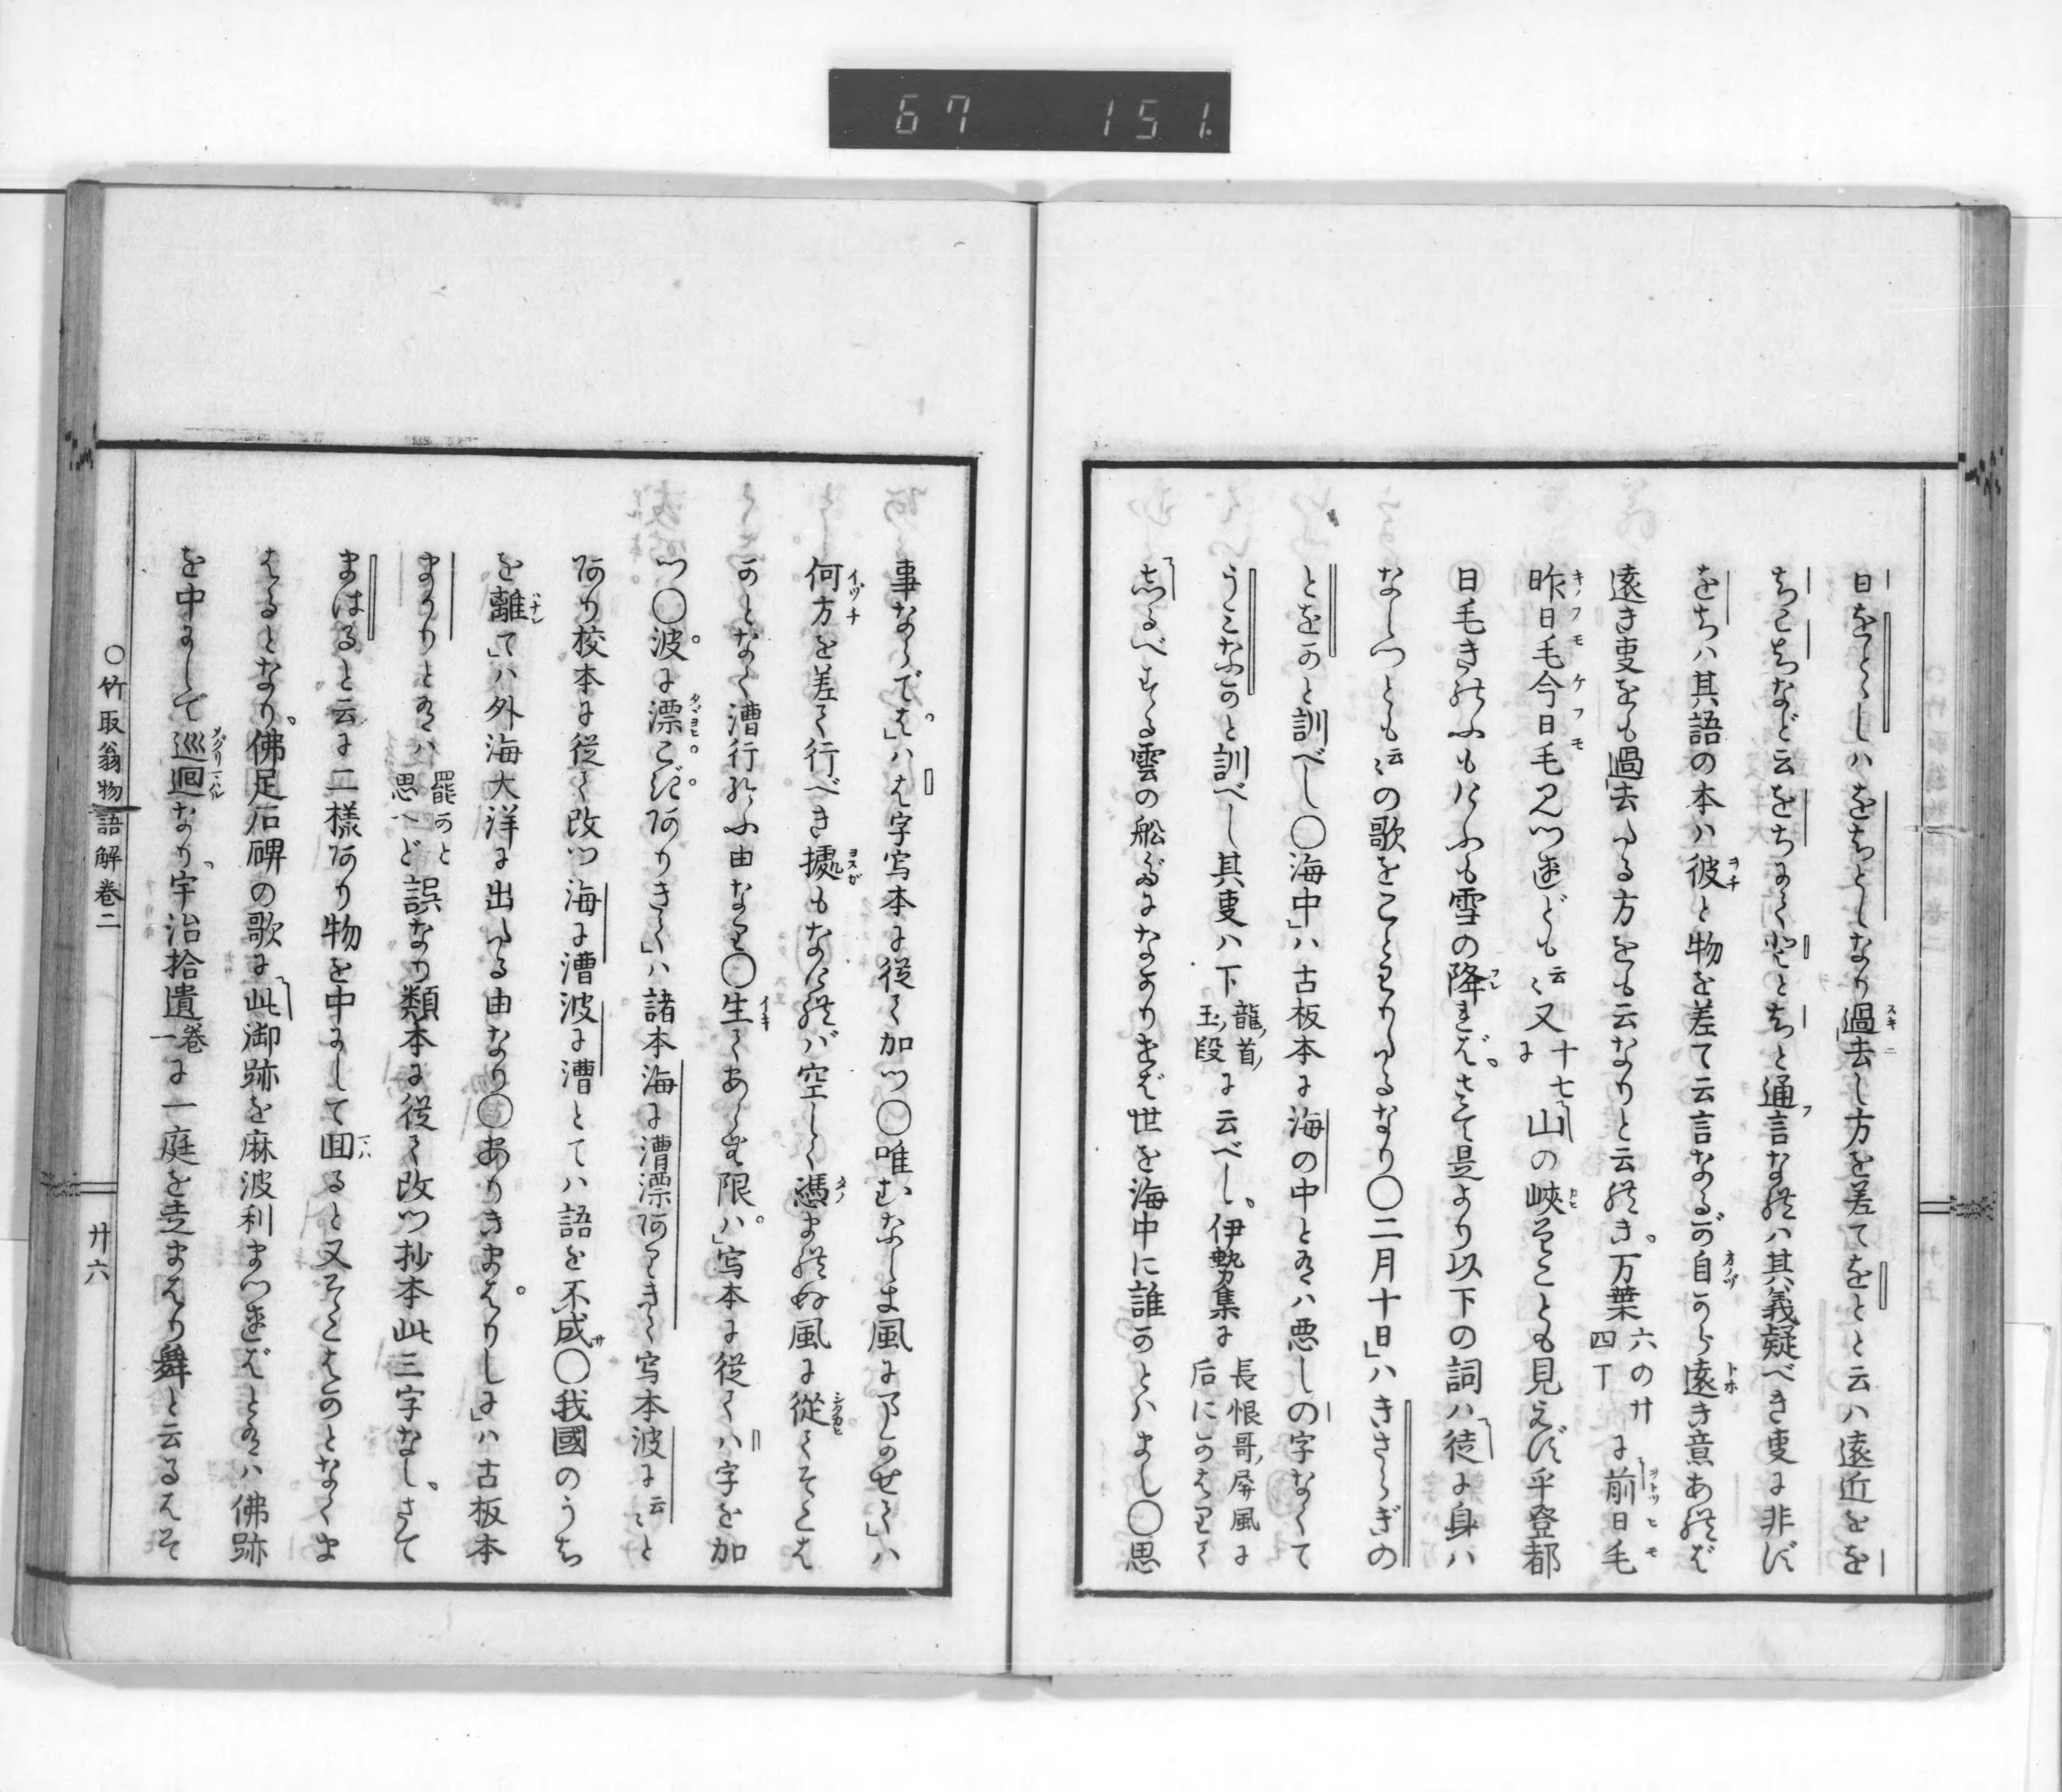 67 151.
日をとゝしハをちとしなり過去し方を差てをとと云ハ遠近とを
ちこちなど云をちにてとと
ちと通言なれハ其義疑べき叓に非ず
をちハ其語の本ハ彼と物を差て云言なるが自から遠き意あれば
遠き叓をも過去たる方をも云なりと云れき。万葉六の廿四丁に前日毛
昨日毛今日毛見つれども云々又十七に山の峽そことも見えず乎登都
日毛きのふもけふも雪の降れば。さて是より以下の詞ハ徒に身ハ
なしつとも云々の歌をことわりたるなり〇二月十日」ハきさらぎの
とをかと訓べし〇海中」ハ古板本に海の中とあるハ悪しの字なくて
うみなかと訓べし其叓ハ下龍ノ首ノ玉ノ段に云べし。伊勢集に長恨哥ノ屏風に后にかはりて
しるべする雲の舩だになかりせば世を海中に誰かとハまし〇思
事ならでは」ハは字写本に従て加つ〇唯むなしき風にまかせて」ハ
何方を差て行べき據もなければ空しく憑まれぬ風に從てそこは
かとなく漕行けふ由なり〇生てあらむ限ハ」写本に従てハ字を加
つ〇波に漂こぎありきて」ハ諸本海に漕漂ありきて写本波に云々と
あり校本に従て改つ海に漕波に漕とてハ語を不成〇我國のうち
を離て」ハ外海大洋に出たる由なり〇ありきまはりしに」ハ古板本
まかりとあるハ罷かと思へど誤なり類本に従て改つ抄本此三字なし。さて
まはると云に二様あり物を中にして囬ると又そこはかとなくま
はるとなり。佛足石碑の歌に此御跡を麻波利まつればとあるハ佛跡
を中にして巡廻なり。宇治拾遺一巻に一庭を走まはり舞と云るはそ
〇竹取翁物語解巻二
廿六